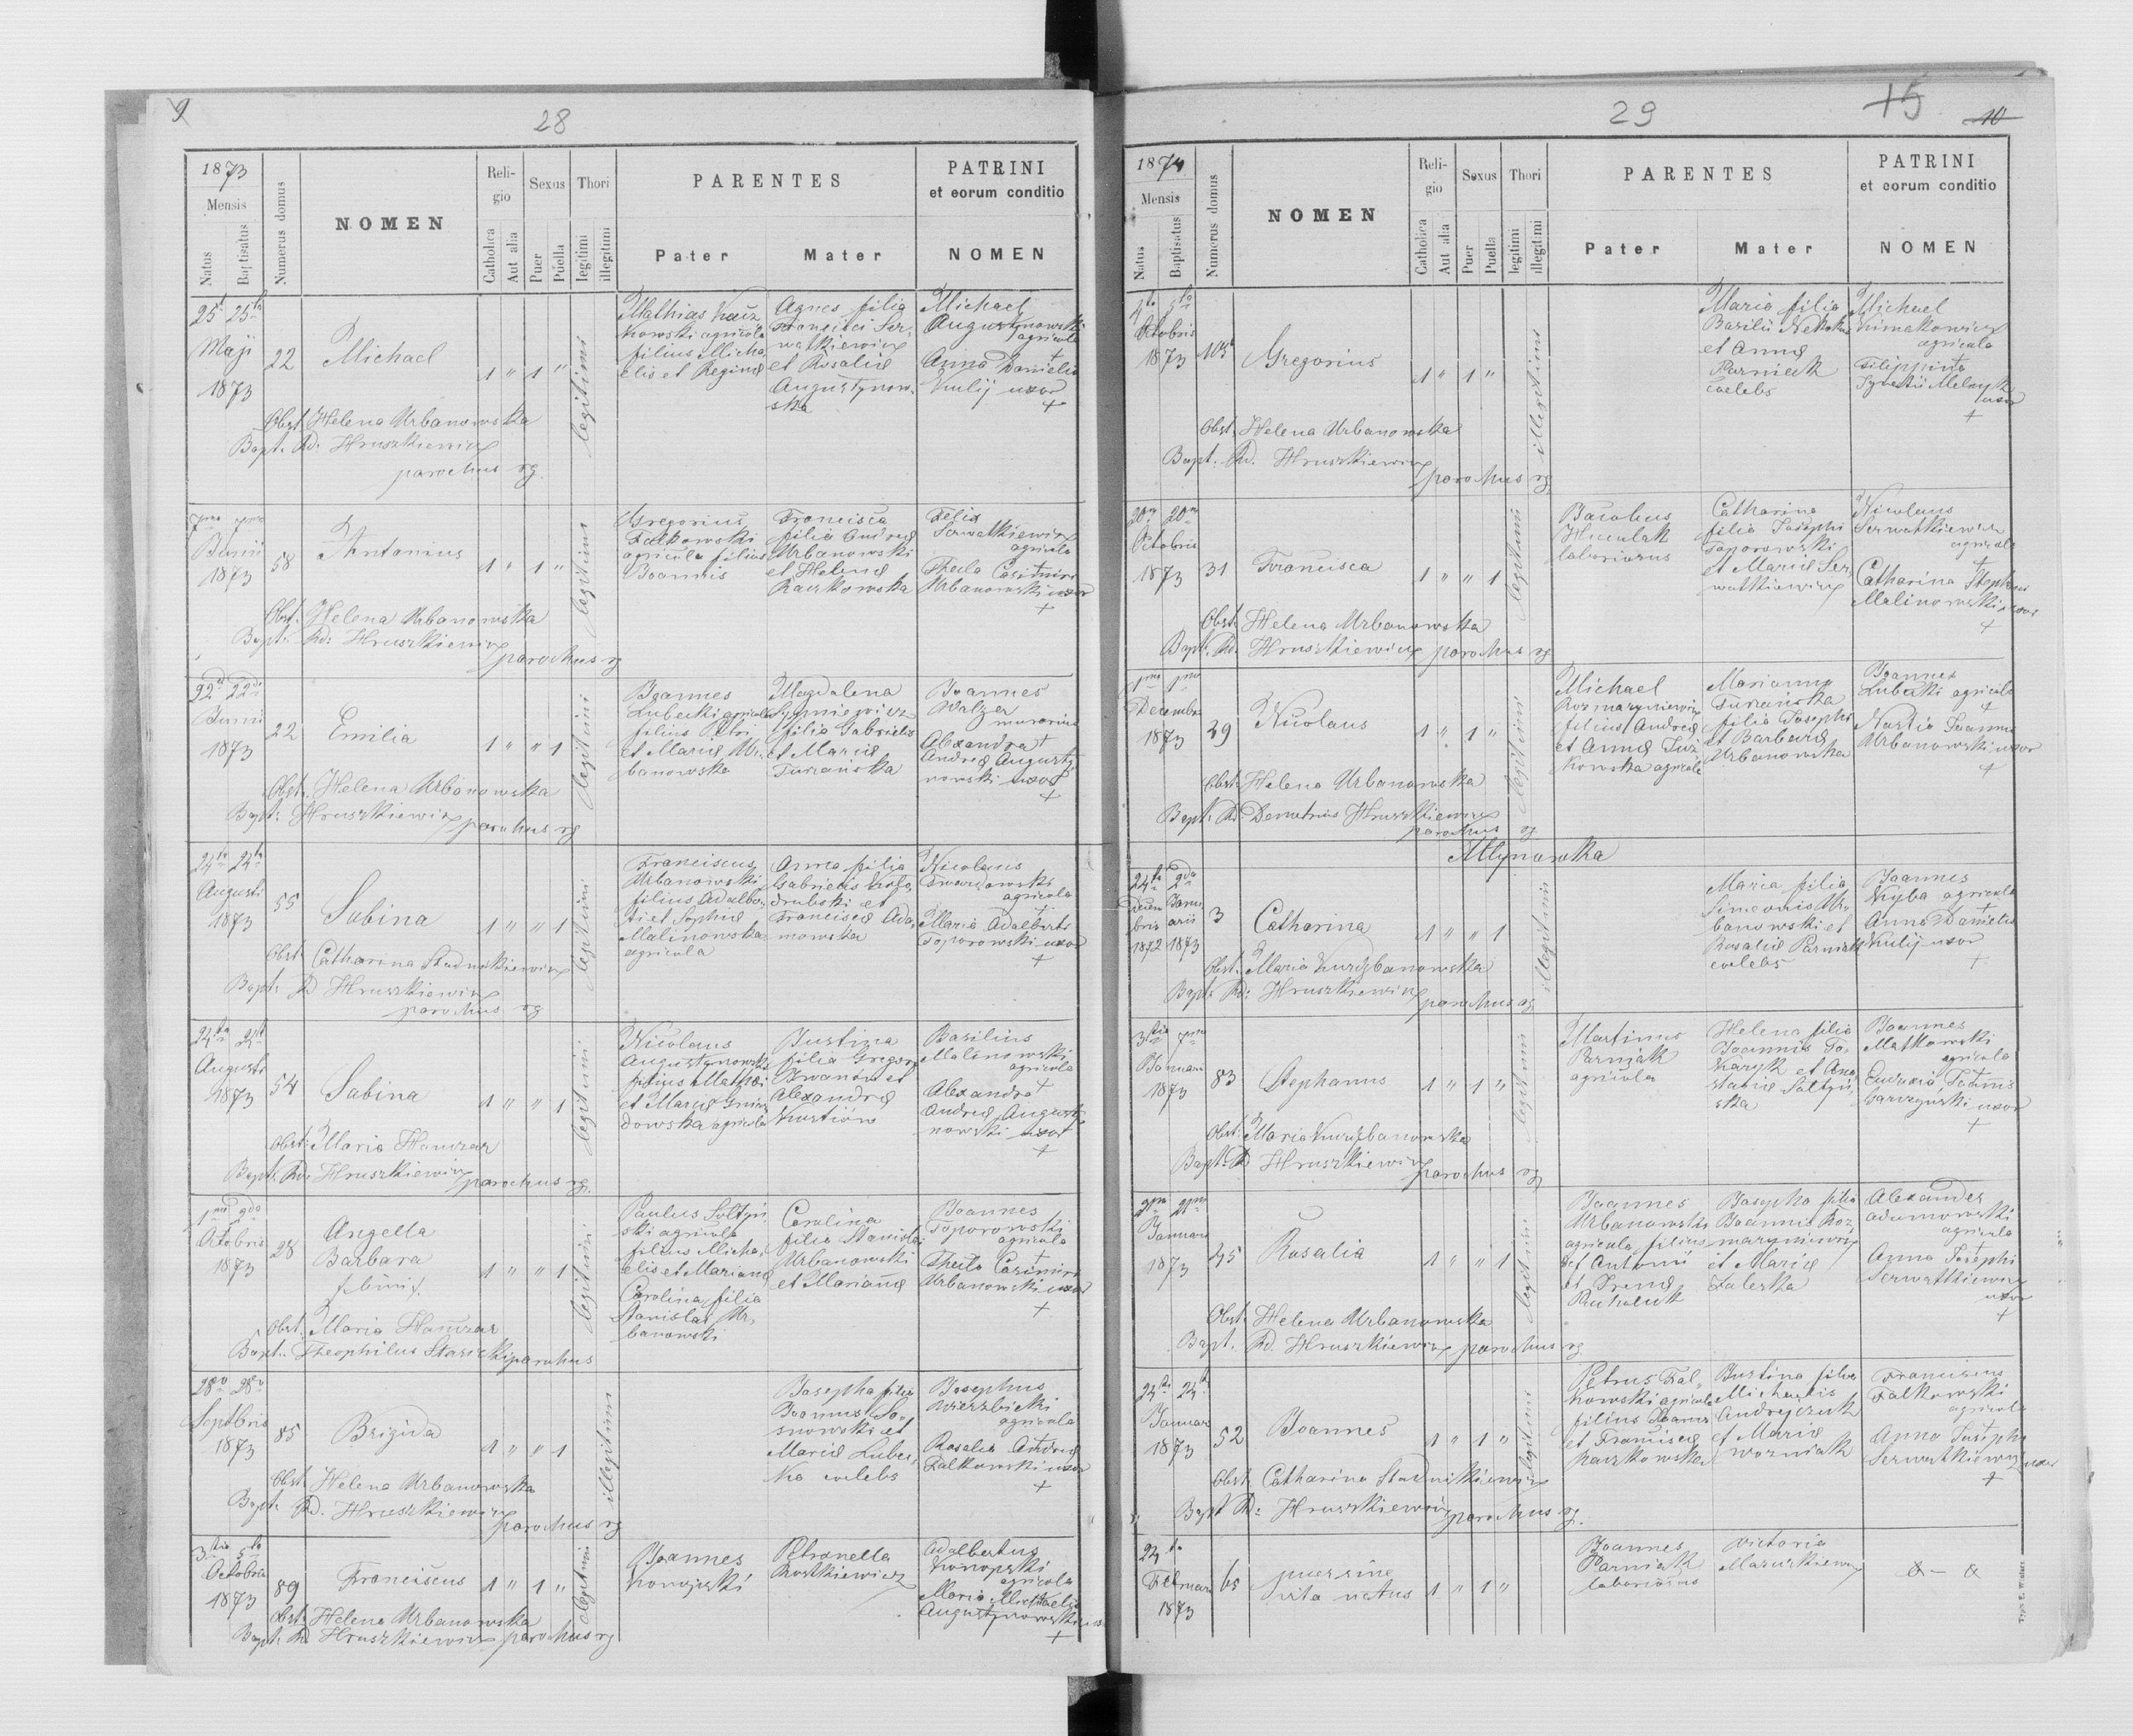 9
28
1873
Mensis
Natus
Baptisatus
Numerus domus
NOMEN
Reli-
gio
Catholica
Aut alia
Sexus
Puer
Puella
Thori
legitimi
illegitimi
PARENTES
Pater
Mater
PATRINI
et eorum conditio
NOMEN
25ta 25ta
Maji
1873
22
Michael
1 " 1 "
legitimi
Mathias
kowski agricola
filius Micha-
elis et Reginae
Agnes filia
Francisci Ser-
watkiewicz
et Rosaliae
Augustynow-
ska
Michael
Augustynowski
agricola
+
Anna Danielis
Kulij uxor
+
Obst. Helena Urbanowska
Bapt. Rd. Hruszkiewicz
parochus rg.
7ma 7ma
Junii
1873
58
Antonius
1 " 1 "
legitimi
Gregorius
Falkowski
agricola filius
Joannis
Francisca
filia Andreae
Urbanowski
et Helenae
Raczkowska
Felix
Serwatkiewicz
agricola
+
Thecla Casimiri
Urbanowski uxor
+
Obst. Helena Urbanowska
Bapt. Rd. Hruszkiewicz
parochus rg
22da 22da
Junii
1873
22
Emilia
1 " " 1
legitimi
Joannes
Lubecki agricola
filius Petri
et Mariae Ur-
banowska
Magdalena
filia Gabrielis
et Mariae
Turzańska
Joannes
Walzer
murarius
+
Alexandra
Andreae Augusty-
nowski uxor
+
Obst. Helena Urbanowska
Bapt: Hruszkiewicz parochus rg
24ta 24ta
Augusti
1873
55
Sabina
1 " " 1
legitimi
Franciscus
Urbanowski
filius Adalber-
ti et Sophiae
Malinowska
agricola
Anna filia
Gabrielis Koło-
drubski et
Franciscae Ada-
mowska
Nicolaus
Twardowski
agricola
+
Maria Adalberti
Toporowski uxor
+
Obst. Catharina Studnikiewicz
Bapt. Rd Hruszkiewicz
parochus rg
24ta 24t
Augusti
1873
54
Sabina
1 " " 1
legitimi
Nicolaus
Augustynowski
filius Mathaei
et Mariae
dowska agricola
Justina
filia Gregorii
Iwanów et
Alexandrae
Kostiów
Basilius
Malinowski
agricola
+
Alexandra
Andreae Augusty-
nowski uxor
+
Obst: Maria Hanczar
Bapt. Rd. Hruszkiewicz parochus rg.
1ma 2da
Octobris
1873
28
Angella
Barbara
1 " " 1
legitimi
Paulus Sołtyń-
ski agricola
filius Micha-
elis et Mariannae
Carolina filia
Stanislai Ur-
banowski
Carolina
filia Stanislai
Urbanowski
et Mariannae
Joannes
Toporowski
agricola
+
Thecla Casimiri
Urbanowski uxor
+
Obst. Maria Hanczar
Bapt. Theophilus Starzecki parochus
28va 28va
Septbris
1873
85
Brigida
1 " " 1
illegitimi
Josepha filia
Joannis So-
snowski et
Mariae Lubec-
ka coelebs
Josephus
Wierzbicki
agricola
+
Rosalia Andreae
Falkowski uxor
+
Obst. Helena Urbanowska
Bapt. Rd. Hruszkiewicz
parochus rg
3tia 5ta
Octobris
1873
89
Franciscus
1 " 1 "
legitimi
Joannes
Konopski
Petronella
Rostkiewicz
Adalbertus
Konopski
agricola
Maria Michaelis
Augustynowski uxor
+
Obst. Helena Urbanowska
Bapt. Rd. Hruszkiewicz parochus rg
29
15
10
1874
Mensis
Natus
Baptisatus
Numerus domus
NOMEN
Reli-
gio
Catholica
Aut alia
Sexus
Puer
Puella
Thori
legitimi
illegitimi
PARENTES
Pater
Mater
PATRINI
et eorum conditio
NOMEN
4ta 5ta
Octobris
1873
105
Gregorius
1 " 1 "
illegitimi
Maria filia
Basilii
et Annae
Parniak
coelebs
Michael
Kimakowicz
agricola
+
Filippina
Melnyk
uxor
+
Obst. Helena Urbanowska
Bapt. Rd. Hruszkiewicz
parochus rg
20ma 20ma
Octobris
1873
31
Francisca
1 " " 1
legitimi
Jacobus
Huculak
laboriosus
Catharina
filia Josephi
Toporowski
et Mariae Ser-
watkiewicz
Nicolaus
Serwatkiewicz
agricola
+
Catharina Stephani
Malinowski uxor
+
Obst. Helena Urbanowska
Bapt. Rd. Hruszkiewicz parochus rg
1ma 1ma
Decembr
1873
29
Nicolaus
1 " 1 "
legitimi
Michael
Rozmaryniewicz
filius Andreae
et Annae
kowska agricola
Marianna
Turzańska
filia Josephi
et Barbarae
Urbanowska
Joannes
Lubecki agricola
+
Nastia Joannis
Urbanowski uxor
+
Obst. Helena Urbanowska
Bapt. Rd Demetrius Hruszkiewicz
parochus rg
Młynówka
24ta 2da
Decem Janu
bris arii
1872 1873
3
Catharina
1 " " 1
illegitimi
Maria filia
Simeonis Ur-
banowski et
Rosaliae Parniak
coelebs
Joannes
Kyba agricola
+
Anna Danielis
Kulij uxor
+
Obst. Maria Kurdybanowska
Bapt. Rd: Hruszkiewicz
parochus rg
3tia 7ma
Januarii
1873
83
Stephanus
1 " 1 "
legitimi
Martinus
Parniak
agricola
Helena filia
Joannis To-
karyk et Ana-
stasiae Sołtyń-
ska
Joannes
Matkowski
agricola
+
Eudoxia Joannis
uxor
+
Obst. Maria Kurdybanowska
Bapt. Rd Hruszkiewicz
parochus rg
21ma 21ma
Januarii
1873
45
Rosalia
1 " " 1
legitimi
Joannes
Urbanowski
agricola, filius
Antonii
et Irenae
Josepha filia
Joannis Roz-
maryniewicz
et Mariae
Zaleska
Alexander
Adamowski
agricola
+
Anna Josephi
Serwatkiewicz
uxor
+
Obst. Helena Urbanowska
Bapt. Rd. Hruszkiewicz parochus rg
24ta 24t
Januar
1873
52
Joannes
1 " 1 "
legitimi
Petrus Fal-
kowski agricola
filius Joannis
et Franciscae
Raczkowska
Justina filia
Michaelis
Andrejczuk
et Mariae
Wozniak
Franciscus
Falkowski
agricola
+
Anna Josephi
Serwatkiewicz uxor
+
Obst. Catharina Studnikiewicz
Bapt Rd: Hruszkiewicz parochus rg.
24ta
Februarii
1873
65
puer sine
vita natus
1 " 1 "
Joannes
Parniak
laboriosus
Victoria
Mazurkiewicz